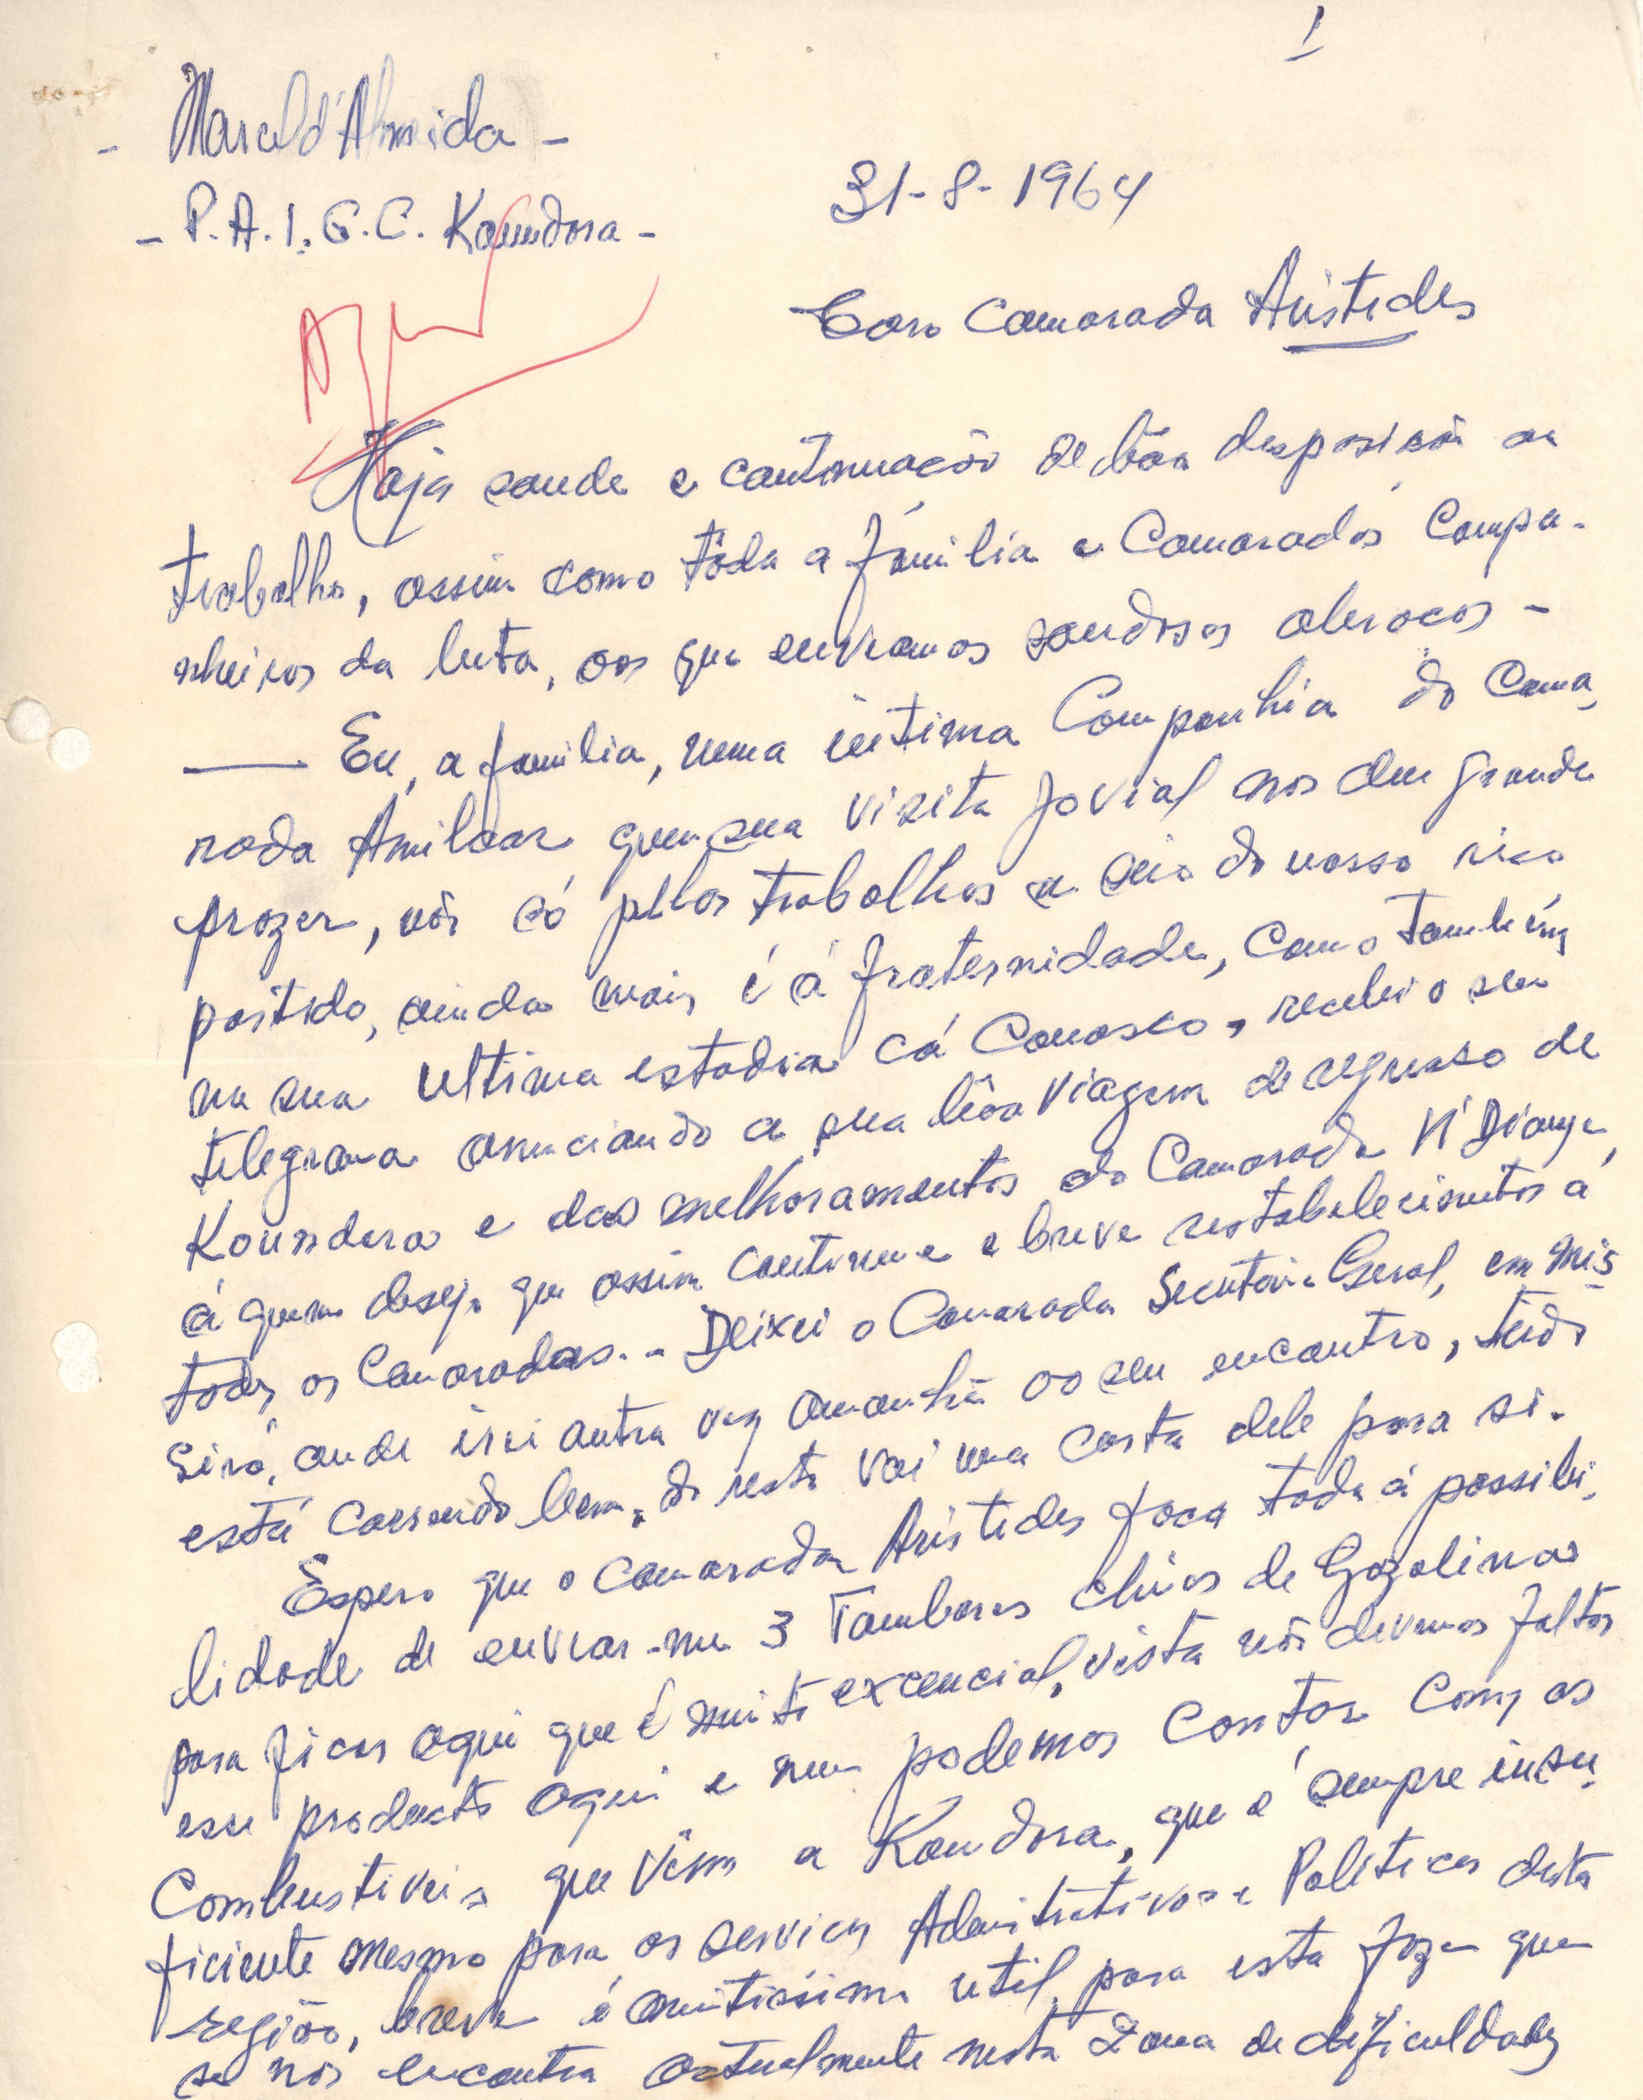 1
- Marcel d'Almeida -
- P.A.I.G.C. Koundara -
31-8-1964
Caro Camarada Aristides
Haja saude e continuação de bôa desposição au
trabalho, assim como tôda a família e Camarados Compa-
nheiros da luta, aos que enviamos saudosos abraços -
Eu, a familia, numa intima Companhia do Cama,
rada Amilcar quem sua visita jovial nos deu grande
prazer, nõs só pellos trabalhos a seio do nosso rico
partido, ainda mais é á fraternidade, como também
na sua ultima estadia cá Conosco, recebi o seu
telegrama anunciando a sua bôa viagem de regresso de
Koundara e das melhoramentos do Camarada N'Dianye,
á quem desejo que assim continue e breve restabelecimentos á
todos os Camaradas.- Deixei o Camarada Secutario Geral, em Mis
sirá, onde irei outra vez amanhã ao seu encontro, tudo
está correndo bem, do resto vai uma carta dele para si.
Espero que o Camarada Aristides faca toda á possibi,
lidade de enviar-me 3 Tambores chios de Gazolinas
para ficar aqui que é muito excencial, vista nõs devemos faltos
esse producto aqui e nem podemos Contar com os
Combustiveis que vêm a Koundara, que é sempre insu,
ficiente mesmo para os servicos Adminitrativos e Politicos desta
região, é muitissimo util para esta que
se nos encontra actualmente nesta Zona de dificuldades